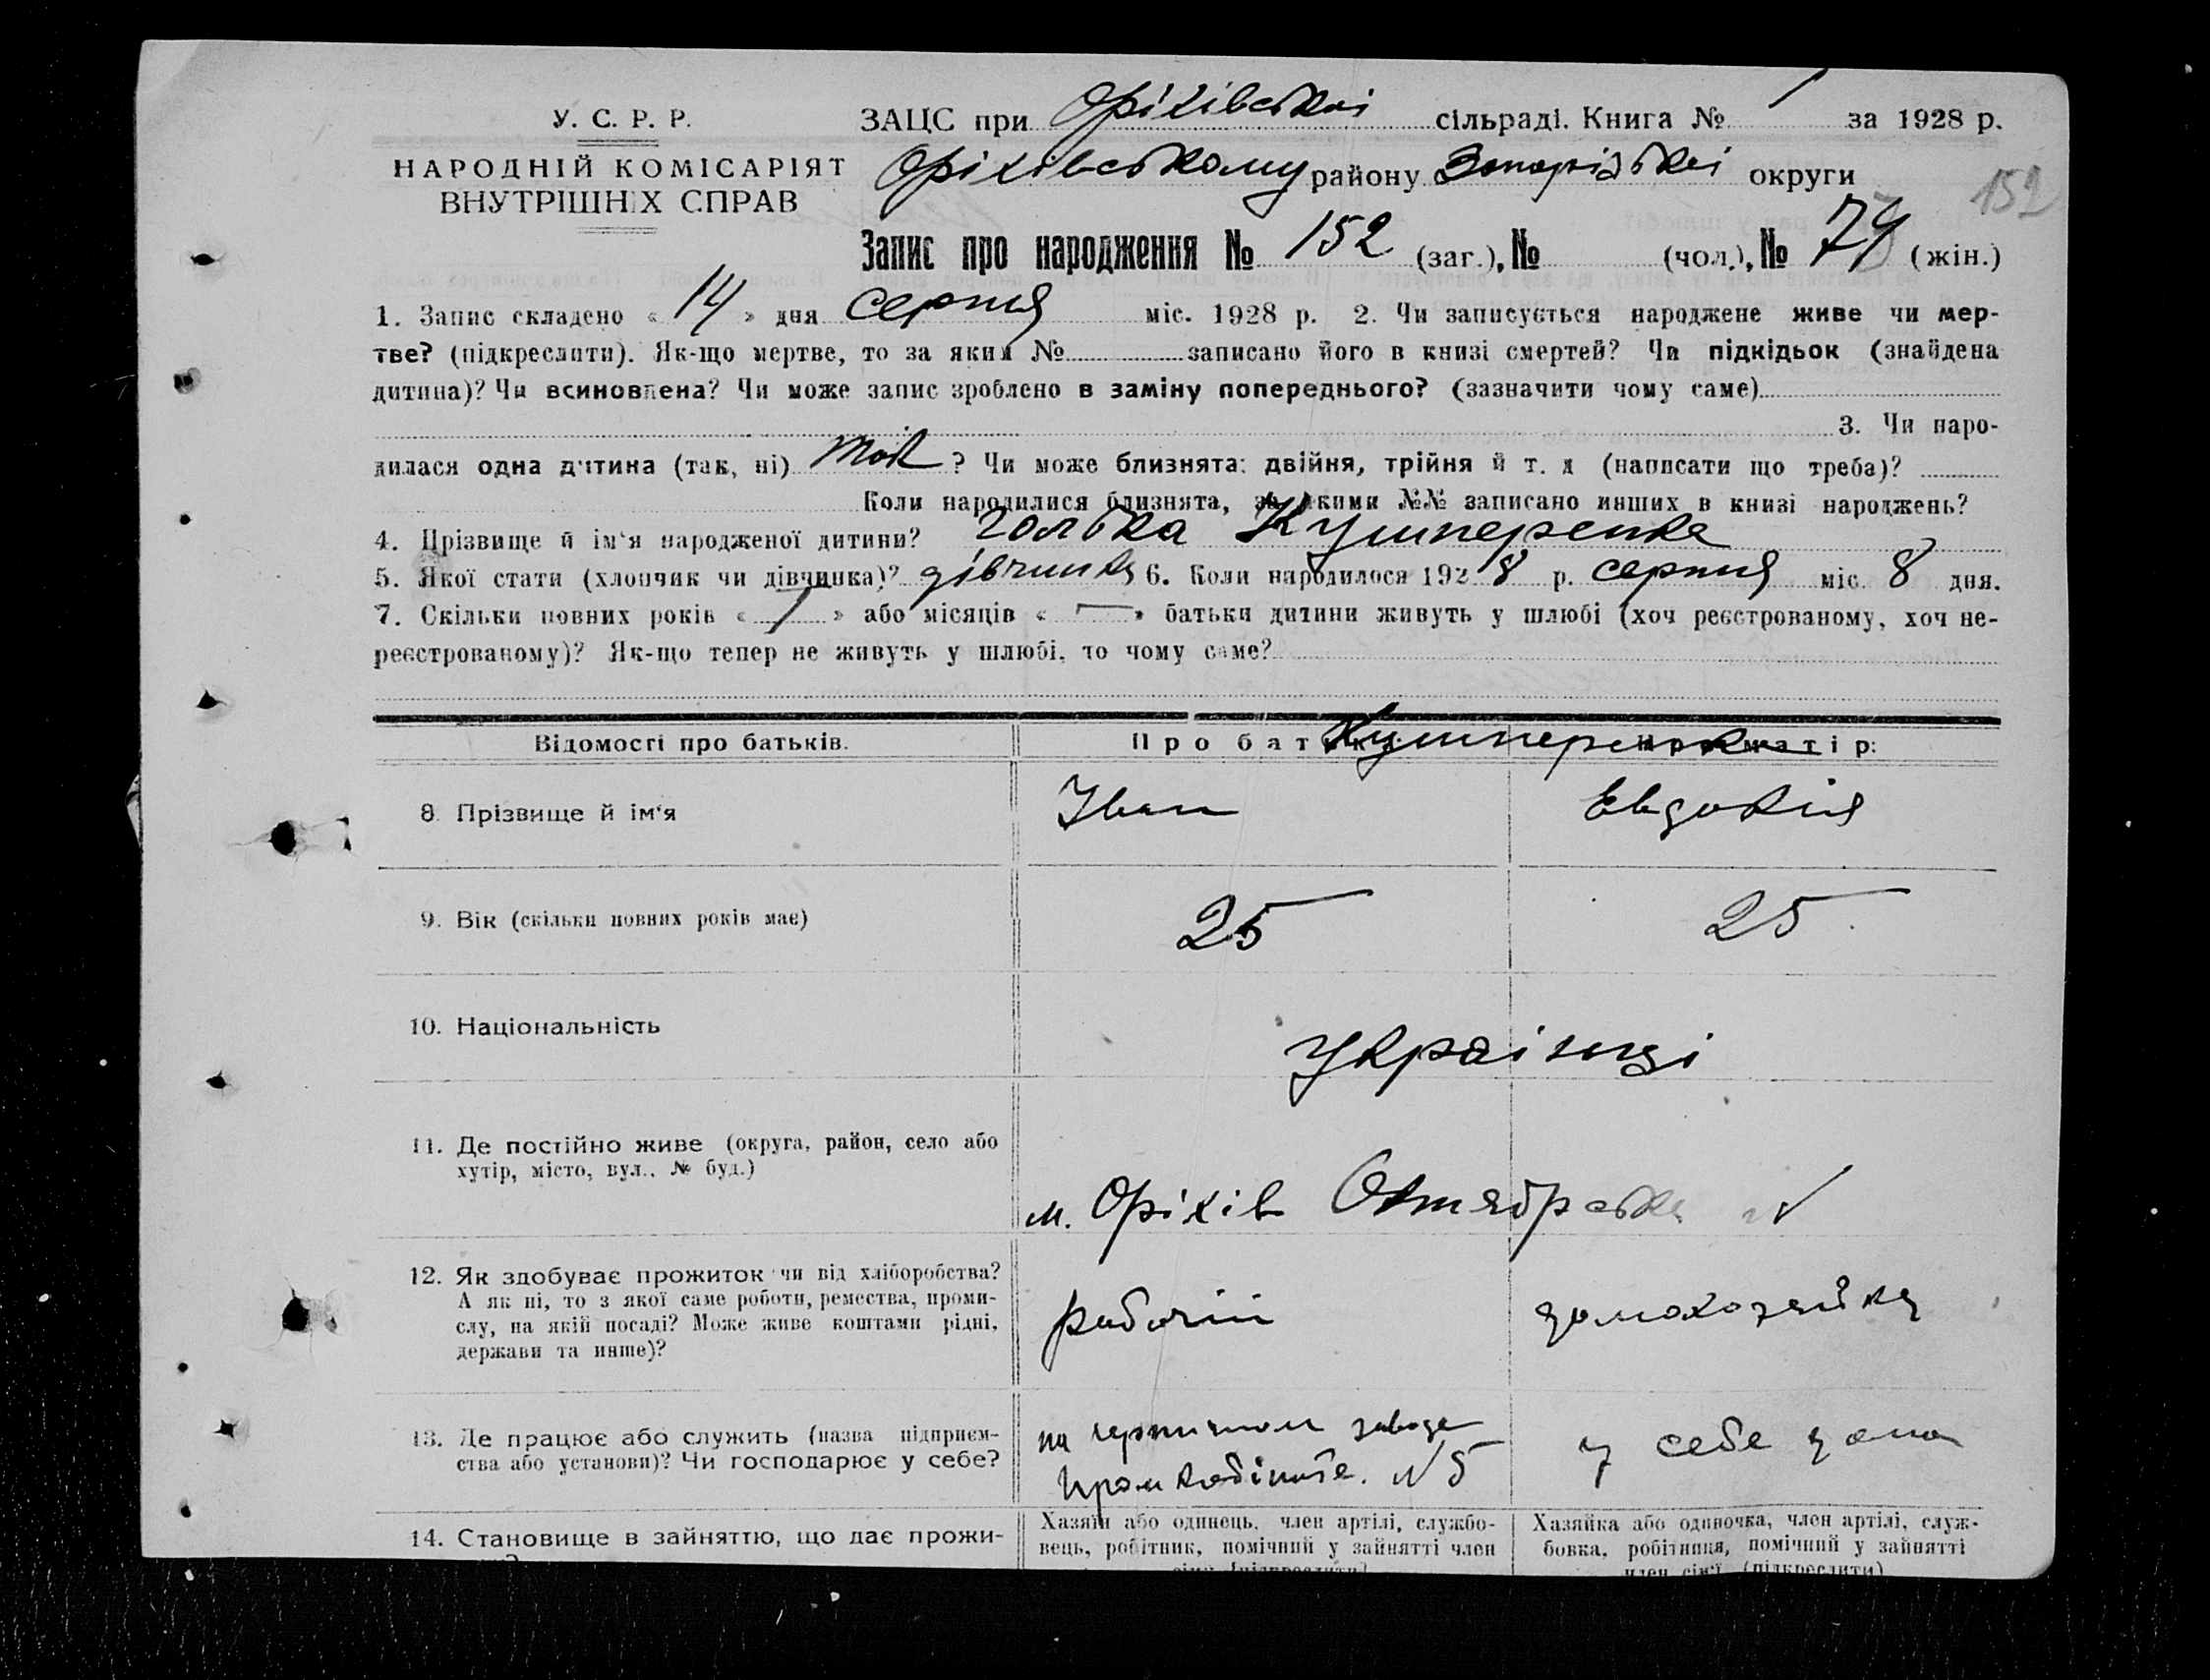 У. С. Р. Р.
НАРОДНІЙ КОМІСАРІЯТ
ВНУТРІШНІХ СПРАВ
ЗАЦС при Оріхівській сільраді. Книга № 1 за 1928 р.
Оріхівському району Запорізькоі округи
152
Запис про народження № 152 (заг.), № (чол.), № 74 (жін.)
1. Запис складено « 14 » дня серпня міс. 1928 р. 2. Чи записується народжене живе чи мер-
тве? (підкреслити). Як-що мертве, то за яким № записано його в книзі смертей? Чи підкідьок (знайдена
дитина)? Чи всиновлена? Чи може запис зроблено в заміну попереднього? (зазначити чому саме)
3. Чи наро-
дилася одна дитина (так, ні) так ? Чи може близнята: двійня, трійня й т. д (написати що треба)?
Коли народилися близнята, за якими №№ записано инших в книзі народжень?
4. Прізвище й ім'я народженої дитини?
5. Якої стати (хлопчик чи дівчинка)? дівчинка 6. Коли народилося 1928 р. серпня міс. 8 дня.
7. Скільки повних років « 1 » або місяців « — » батьки дитини живуть у шлюбі (хоч реєстрованому, хоч не-
реєстрованому)? Як-що тепер не живуть у шлюбі, то чому саме?
Відомості про батьків.
Про батька:
Про матір:
8. Прізвище й ім'я
Іван
Евдокія
9. Вік (скільки повних років має)
25
25
10. Національність
Українці
11. Де постійно живе (округа, район, село або
хутір, місто, вул., № буд.)
м. Оріхів Октябрська №
12. Як здобуває прожиток чи від хліборобства?
А як ні, то з якої саме роботи, ремества, проми-
слу, на якій посаді? Може живе коштами рідні,
держави та инше)?
рабочій
домохозяйка
13. Де працює або служить (назва підприєм-
ства або установи)? Чи господарює у себе?
на заводе
№ 5
у себе дома
14. Становище в зайняттю, що дає прожи-
Хазяїн або одинець, член артілі, службо-
вець, робітник, помічний у зайнятті член
сім'ї (підкреслити)
Хазяйка або одиночка, член артілі, служ-
бовка, робітниця, помічний у зайнятті
член сім'ї (підкреслити)